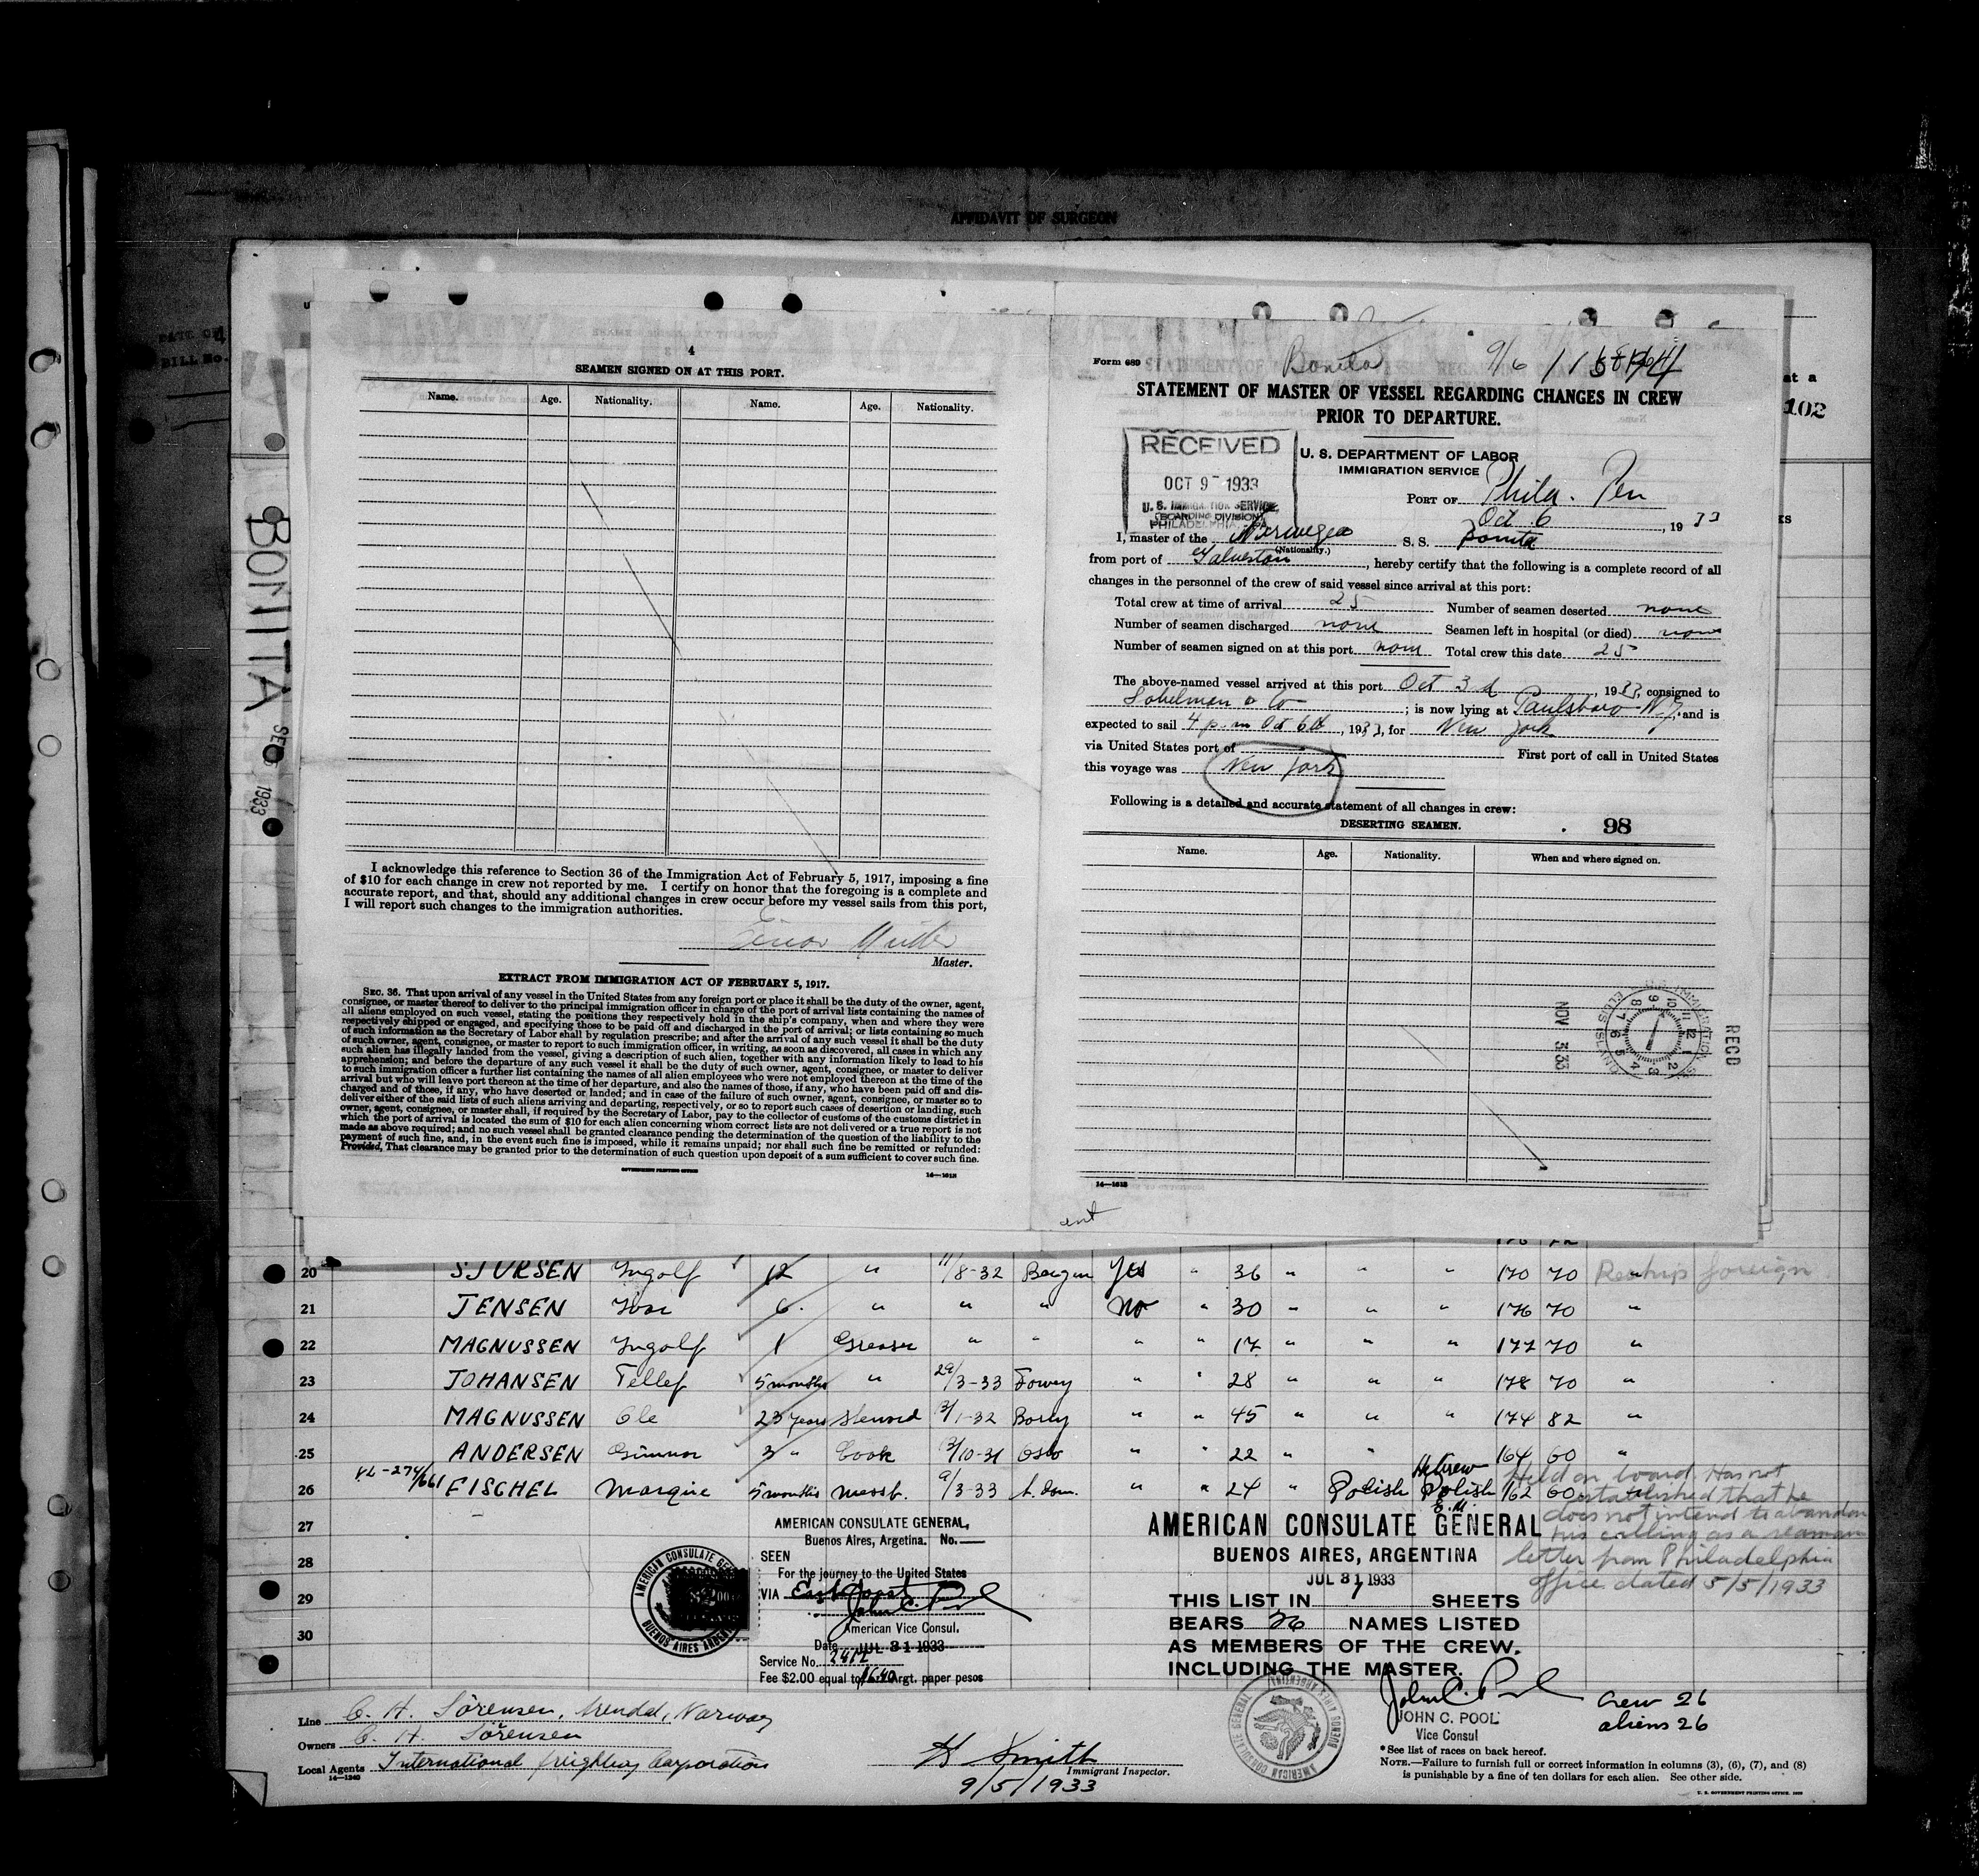 AFFIDAVIT OF SURGEON
DATE OF
BILL No.
at a
102
KS
BONITA
SEP 1933
4
SEAMEN SIGNED ON AT THIS PORT.
Name. Age. Nationality. Name. Age. Nationality.
I acknowledge this reference to Section 36 of the Immigration Act of February 5, 1917, imposing a fine
of $10 for each change in crew not reported by me. I certify on honor that the foregoing is a complete and
accurate report, and that, should any additional changes in crew occur before my vessel sails from this port,
I will report such changes to the immigration authorities.
Master.
EXTRACT FROM IMMIGRATION ACT OF FEBRUARY 5, 1917.
SEC. 36. That upon arrival of any vessel in the United States from any foreign port or place it shall be the duty of the owner, agent,
consignee, or master thereof to deliver to the principal immigration officer in charge of the port of arrival lists containing the names of
all aliens employed on such vessel, stating the positions they respectively hold in the ship's company, when and where they were
respectively shipped or engaged, and specifying those to be paid off and discharged in the port of arrival; or lists containing so much
of such information as the Secretary of Labor shall by regulation prescribe; and after the arrival of any such vessel it shall be the duty
of such owner, agent, consignee, or master to report to such immigration officer, in writing, as soon as discovered, all cases in which any
such alien has illegally landed from the vessel, giving a description of such alien, together with any information likely to lead to his
apprehension; and before the departure of any such vessel it shall be the duty of such owner, agent, consignee, or master to deliver
to such immigration officer a further list containing the names of all alien employees who were not employed thereon at the time of the
arrival but who will leave port thereon at the time of her departure, and also the names of those, if any, who have been paid off and dis-
charged and of those, if any, who have deserted or landed; and in case of the failure of such owner, agent, consignee, or master so to
deliver either of the said lists of such aliens arriving and departing, respectively, or so to report such cases of desertion or landing, such
owner, agent, consignee, or master shall, if required by the Secretary of Labor, pay to the collector of customs of the customs district in
which the port of arrival is located the sum of $10 for each alien concerning whom correct lists are not delivered or a true report is not
made as above required; and no such vessel shall be granted clearance pending the determination of the question of the liability to the
payment of such fine, and, in the event such fine is imposed, while it remains unpaid; nor shall such fine be remitted or refunded:
Provided, That clearance may be granted prior to the determination of such question upon deposit of a sum sufficient to cover such fine.
GOVERNMENT PRINTING OFFICE
14—1618
Form 689 Bonita 9/6
STATEMENT OF MASTER OF VESSEL REGARDING CHANGES IN CREW
PRIOR TO DEPARTURE.
RECEIVED
OCT 9 1933
U. S. IMMIGRATION SERVICE
(BOARDING DIVISION)
PHILADELPHIA, PA.
U. S. DEPARTMENT OF LABOR
IMMIGRATION SERVICE
PORT OF Phila. Pen
Oct 6, 1933
I, master of the Norwegea S. S. Bonita
(Nationality.)
from port of Galveston, hereby certify that the following is a complete record of all
changes in the personnel of the crew of said vessel since arrival at this port:
Total crew at time of arrival 25 Number of seamen deserted none
Number of seamen discharged none Seamen left in hospital (or died) none
Number of seamen signed on at this port none Total crew this date 25
The above-named vessel arrived at this port Oct 3d, 1933, consigned to
& Co; is now lying at Paulsboro N.J., and is
expected to sail 4 p.m Oct 6th, 1933, for New York
via United States port of First port of call in United States
this voyage was New York
Following is a detailed and accurate statement of all changes in crew:
DESERTING SEAMEN. 98
Name. Age. Nationality. When and where signed on.
RECD
NOV 3 33
IMMIGRATION
ELLIS ISLAND
14—1618
ent
20 SJURSEN Ingolf 12 " 11/8-32 Bergen Yes " 36 " " " 170 70 Reship foreign
21 JENSEN 6 " " " No " 30 " " " 176 70 "
22 MAGNUSSEN Ingolf 1 Greaser " " " " 17 " " " 177 70 "
23 JOHANSEN Tellef 5 months " 29/3-33 Fowey " " 28 " " " 178 70 "
24 MAGNUSSEN Ole 23 years Steward 3/1-32 Barry " " 45 " " " 174 82 "
25 ANDERSEN Gunnar 3 " Cook 3/10-31 Oslo " " 22 " " 164 60 "
26 FISCHEL Marqire 5 months Messb. 9/3-33 " " 24 " Polish Hebrew Polish 162 60
Held on board. Has not
established that he
does not intend to abandon
his calling as a seaman
letter from Philadelphia
office dated 5/5/1933
27
28
29
30
AMERICAN CONSULATE GENERAL,
Buenos Aires, Argetina. No.
SEEN
For the journey to the United States
VIA East Coast
John C. Pool
American Vice Consul.
Date JUL 31 1933
Service No. 2412
Fee $2.00 equal to Argt. paper pesos
AMERICAN CONSULATE GENERAL
BUENOS AIRES ARGENTINA
AMERICAN CONSULATE GENERAL
BUENOS AIRES, ARGENTINA
JUL 31 1933
THIS LIST IN 1 SHEETS
BEARS 26 NAMES LISTED
AS MEMBERS OF THE CREW.
INCLUDING THE MASTER.
John C. Pool
JOHN C. POOL
Vice Consul
Crew 26
aliens 26
AMERICAN CONSULATE GENERAL
BUENOS AIRES ARGENTINA
Line C. H. Sörensen, Arendal, Norway
Owners C. H. Sörensen
Local Agents International freighting Corporation
14—1240
H Smith
Immigrant Inspector.
9/5/1933
*See list of races on back hereof.
NOTE.—Failure to furnish full or correct information in columns (3), (6), (7), and (8)
is punishable by a fine of ten dollars for each alien. See other side.
U. S. GOVERNMENT PRINTING OFFICE